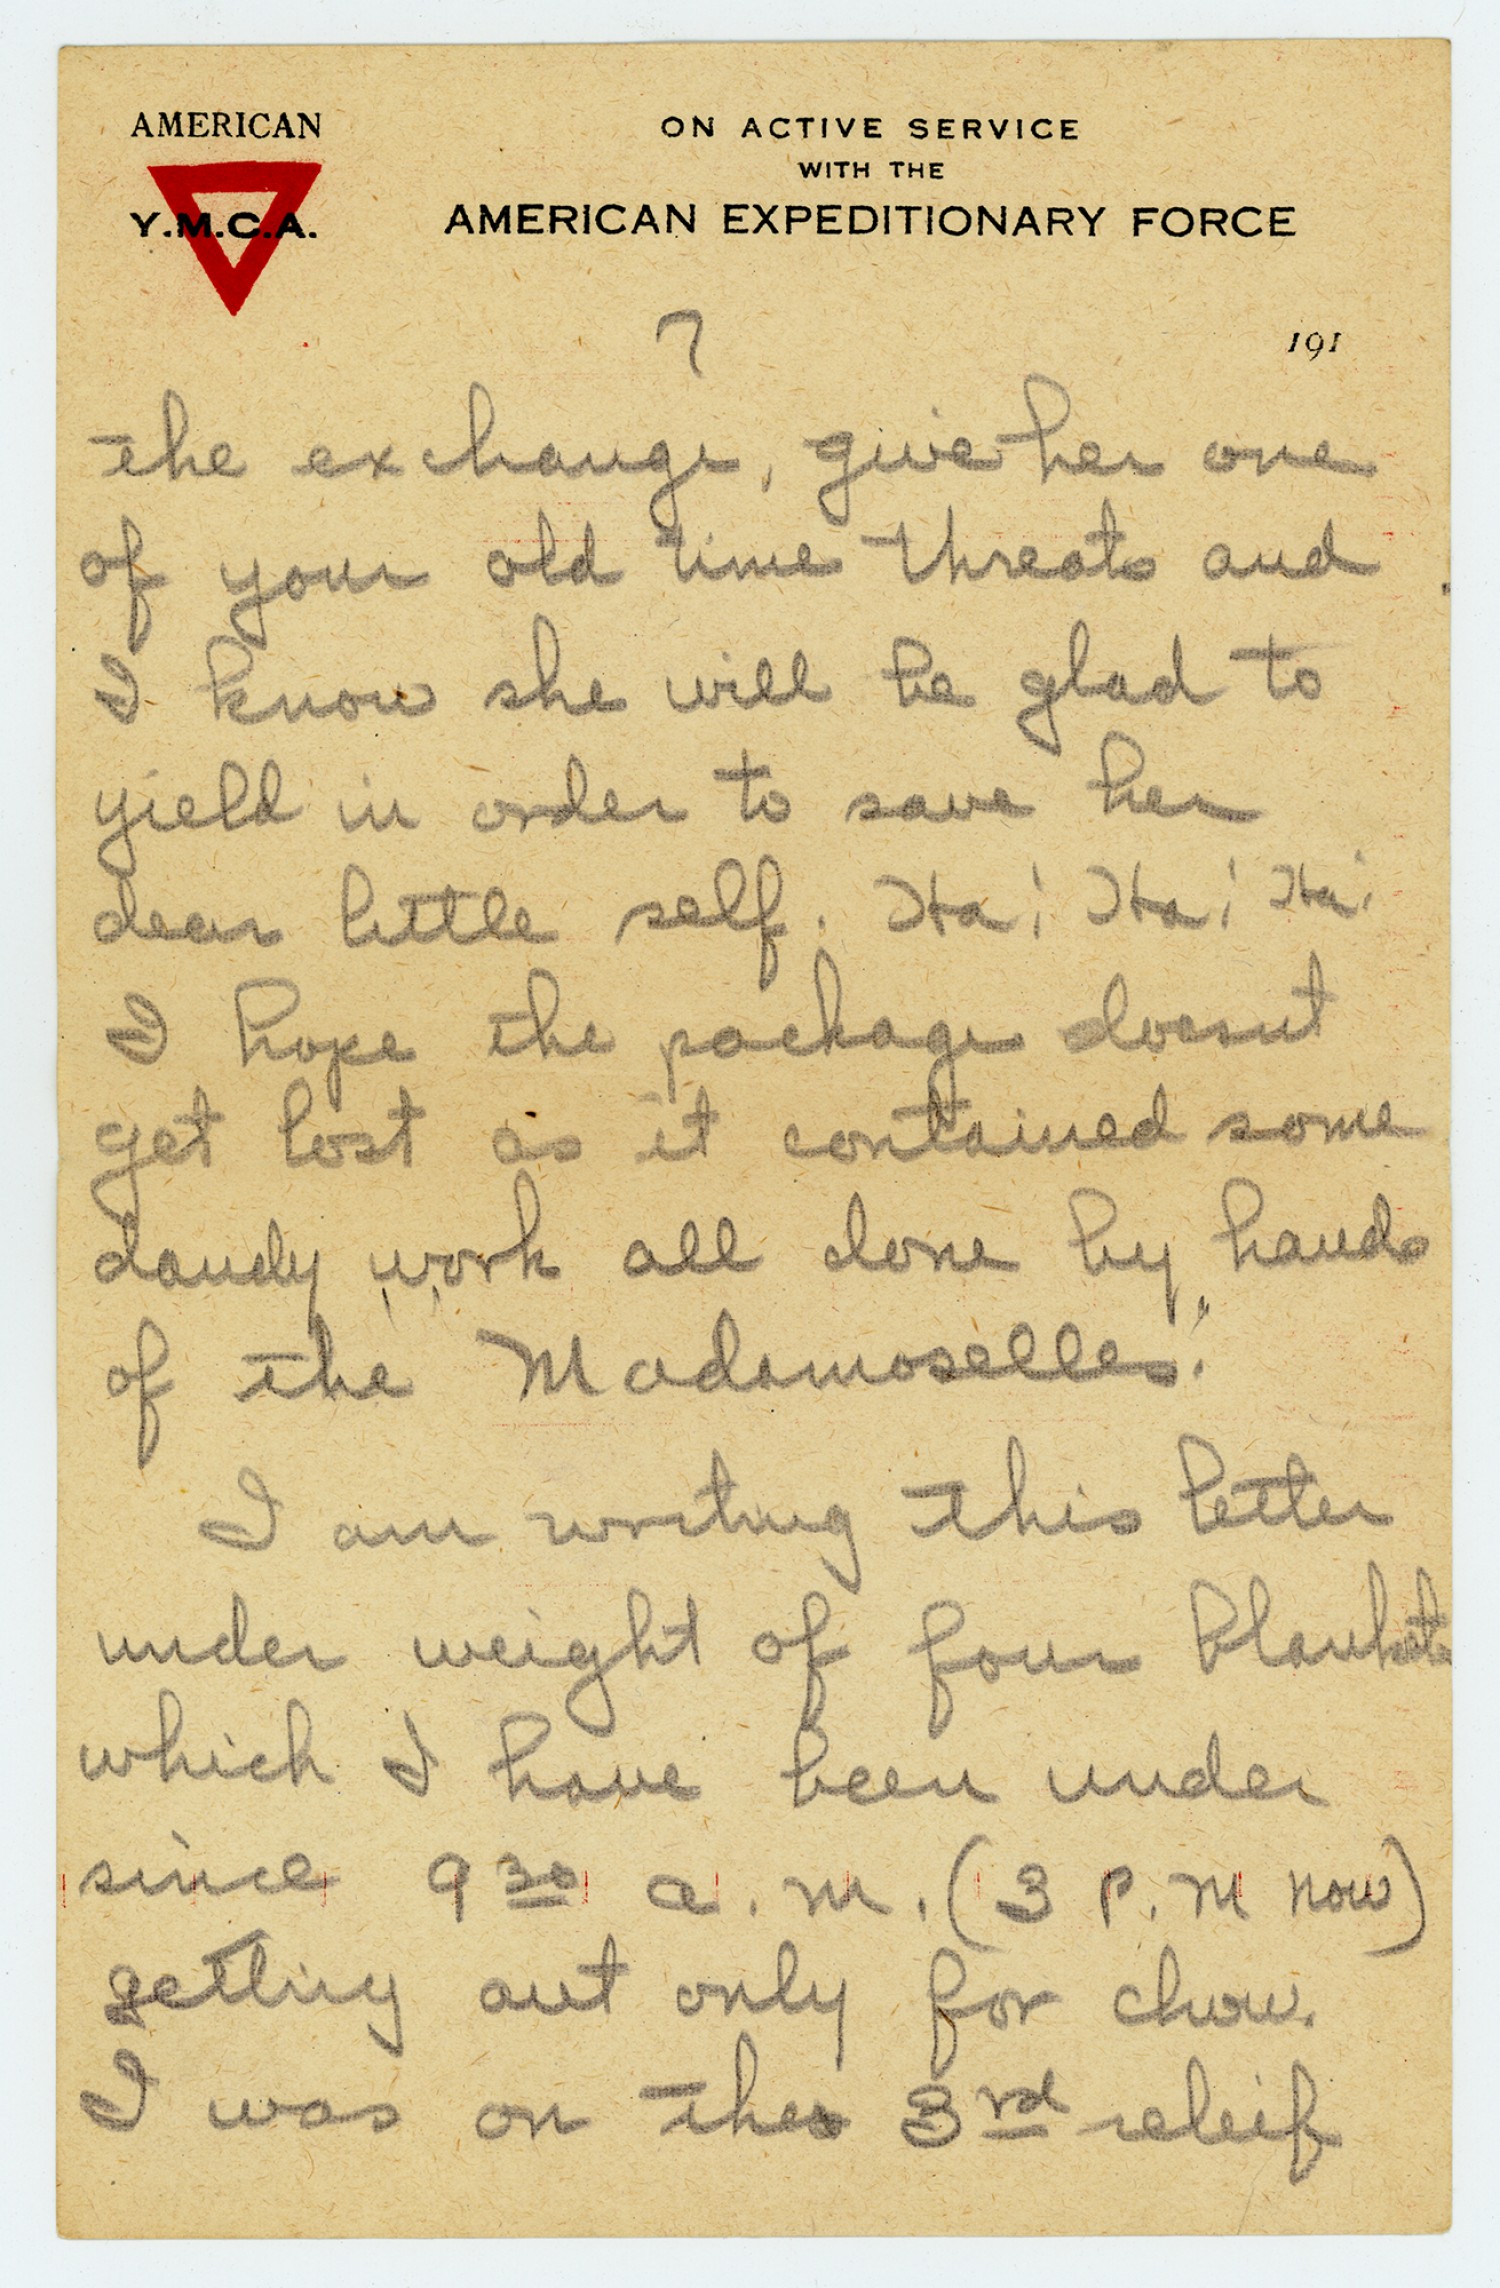 AMERICAN
Y.M.C.A.
ON ACTIVE SERVICE
WITH THE
AMERICAN EXPEDITIONARY FORCE
7
191
the exchange, give her one
of your old time threats and
I know she will be glad to
yield in order to save her
dear little self. Ha! Ha! Ha!
I hope the package doesnt
get lost as it contained some
dandy work all done by hands
of the "Madamoselles."
I am writing this letter
under weight of four blankets
which I have been under
since 9 30 a.m. (3 P.M now)
getting out only for chow.
I was on the 3rd releif